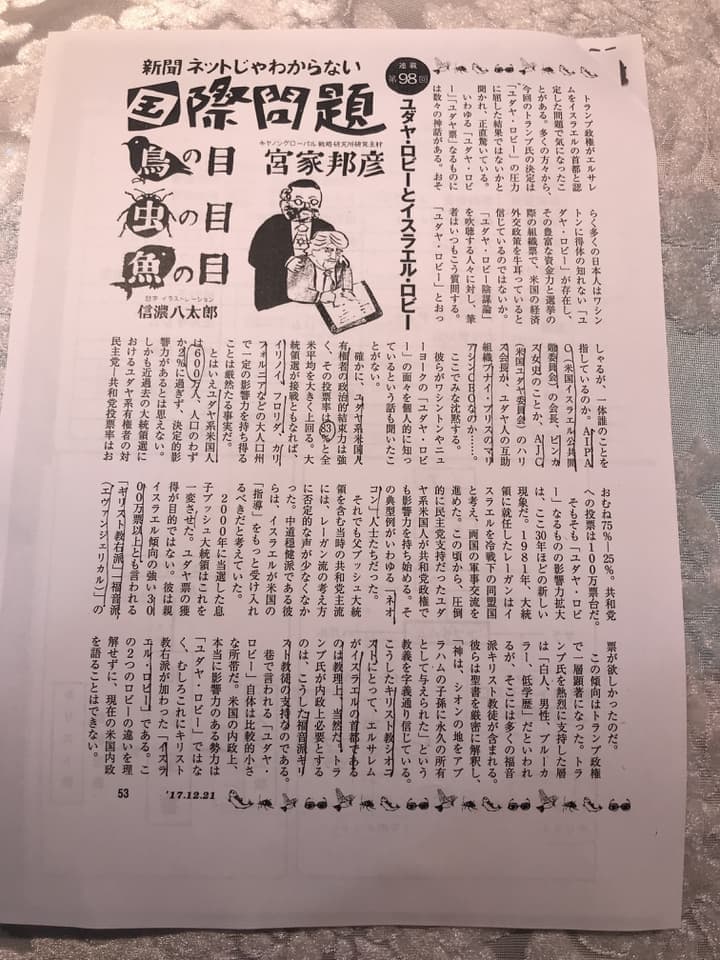 新聞 ネットじゃわからない
国際問題
鳥の目
虫の目
魚の目
キヤノングローバル戦略研究所研究主幹
宮家邦彦
題字 イラストレーション
信濃八太郎
連載
第98回
ユダヤ・ロビーとイスラエル・ロビー
トランプ政権がエルサレ
ムをイスラエルの首都と認
定した問題で気になったこ
とがある。多くの方々から、
今回のトランプ氏の決定は
「ユダヤ・ロビー」の圧力
に屈した結果ではないかと
聞かれ、正直驚いている。
いわゆる「ユダヤ・ロビ
ー」「ユダヤ票」なるものに
は数々の神話がある。おそ
らく多くの日本人はワシン
トンに得体の知れない「ユ
ダヤ・ロビー」が存在し、
その豊富な資金力と選挙の
際の組織票で、米国の経済
外交政策を牛耳っていると
信じているのではないか。
「ユダヤ・ロビー陰謀論」
を吹聴する人々に対し、筆
者はいつもこう質問する。
「『ユダヤ・ロビー』とおっ
しゃるが、一体誰のことを
指しているのか。AIPA
C(米国イスラエル公共問
題委員会)の会長、ピンカ
ス女史のことか、AJC
(米国ユダヤ委員会)のハリ
ス会長か、ユダヤ人の互助
組織ブナイ・ブリスのマリ
アシンCEOなのか……。
ここでみな沈黙する。
彼らがワシントンやニュ
ーヨークの「ユダヤ・ロビ
ー」の面々を個人的に知っ
ているという話も聞いたこ
とがない。
確かに、ユダヤ系米国人
有権者の政治的結束力は強
く、その投票率は83%と全
米平均を大きく上回る。大
統領選が接戦ともなれば、
イリノイ、フロリダ、カリ
フォルニアなどの大人口州
で一定の影響力を持ち得る
ことは厳然たる事実だ。
とはいえユダヤ系米国人
は600万人、人口のわず
か2%に過ぎず、決定的影
響力があるとは思えない。
しかも近過去の大統領選に
おけるユダヤ系有権者の対
民主党/共和党投票率はお
おむね75%-25%。共和党
への投票は100万票台だ。
そもそも「ユダヤ・ロビ
ー」なるものの影響力拡大
は、ここ30年ほどの新しい
現象だ。1981年、大統
領に就任したレーガンはイ
スラエルを冷戦下の同盟国
と考え、両国の軍事交流を
進めた。この頃から、圧倒
的に民主党支持だったユダ
ヤ系米国人が共和党政権で
も影響力を持ち始める。そ
の典型例がいわゆる「ネオ
コン」人士たちだった。
それでも父ブッシュ大統
領を含む当時の共和党主流
には、レーガン流の考え方
に否定的な声が少なくなか
った。中道穏健派である彼
らは、イスラエルが米国の
「指導」をもっと受け入れ
るべきだと考えていた。
2000年に当選した息
子ブッシュ大統領はこれを
一変させた。ユダヤ票の獲
得が目的ではない。彼は親
イスラエル傾向の強い30
00万票以上とも言われる
「キリスト教右派」「福音派
(エヴァンジェリカル)」の
票が欲しかったのだ。
この傾向はトランプ政権
で一層顕著になった。トラ
ンプ氏を熱烈に支持した層
は「白人、男性、ブルーカ
ラー、低学歴」だといわれ
るが、そこには多くの福音
派キリスト教徒が含まれる。
彼らは聖書を厳密に解釈し、
「神は、シオンの地をアブ
ラハムの子孫に永久の所有
として与えられた」という
教義を字義通り信じている。
こうしたキリスト教シオニ
ストにとって、エルサレム
がイスラエルの首都である
のは教理上、当然だ。トラ
ンプ氏が内政上必要とする
のは、こうした福音派キリ
スト教徒の支持なのである。
巷で言われる「ユダヤ・
ロビー」自体は比較的小さ
な所帯だ。米国の内政上、
本当に影響力のある勢力は
「ユダヤ・ロビー」ではな
く、むしろこれにキリスト
教右派が加わった「イスラ
エル・ロビー」である。こ
の2つのロビーの違いを理
解せずに、現在の米国内政
を語ることはできない。
53
'17.12.21